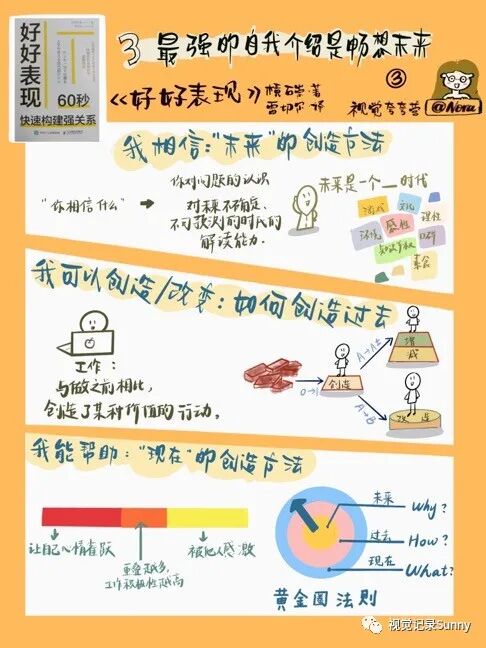 好好表现
60秒
快速构建强关系
3 最强的自我介绍是畅想未来
③
《好好表现》
视觉夸夸营
@Nora
我相信:“未来”的创造方法
“你相信什么”
你对问题的认识
对未来不确定、
不可预测的时代的
解读能力.
未来是一个__时代
游戏
文化
理性
感性
环境
知识产权
素食
我可以创造/改变:如何创造过去
工作:
与做之前相比,
创造了某种价值的行动。
0→1
创造
A→A±
增
减
A→B
改造
我能帮助:“现在”的创造方法
让自己心情雀跃
重叠越多,
工作积极性越高
被他人感激
未来
Why?
过去
How?
现在
What?
黄金圈法则
视觉记录Sunny